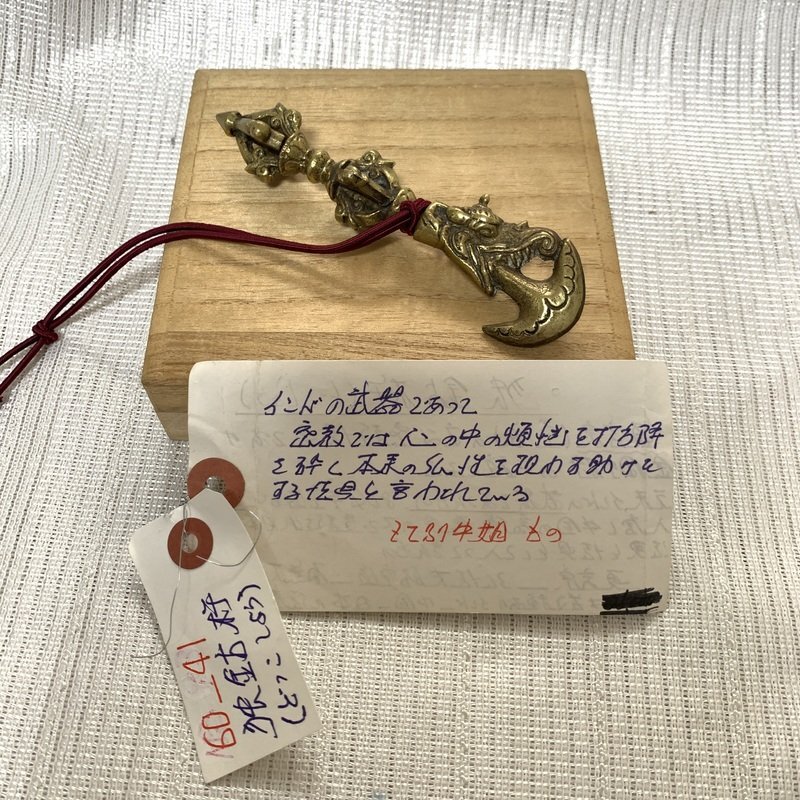 インドの武器であって
密教では心の中の煩悩を打ち降
を砕く本来の仏性を現わす助けと
する法具と言われている
もの
160-41
独鈷杵
(どっこしょう)